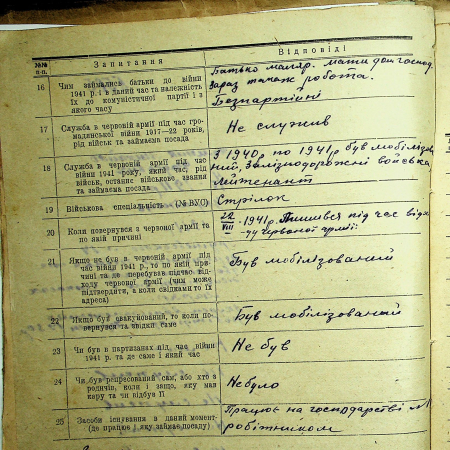 №№ п.п.
Запитання
Відповіді
16
Чим займались батьки до війни
1941 р. і в даний час та належність
їх до комуністичної партії і з
якого часу
Батько маляр. мати дом. господ.
Зараз також робота.
Безпартійні
17
Служба в червоній армії під час гро-
мадянської війни 1917—22 років,
рід військ та займаєма посада
Не служив
18
Служба в червоній армії під час
війни 1941 року, який час, рід
військ, останнє військове звання
та займаєма посада
З 1940 р по 1941 р був мобілізов.
ний, Залізнодорожні войська
лейтенант
19
Військова спеціальність (№ ВУС)
Стрілок
20
Коли повернувся з червоної армії та
по якій причині
22/VIII -1941р. Лишився під час відх
червоної армії.
21
Якщо не був в червоній армії під
час війни 1941 р., то по якій при-
чині та де перебував підчас від-
ходу червоної армії (чим може
підтвердити, а коли свідками то їх
адреса)
Був мобілізований
22
Якщо був евакуйований, то коли по-
вернувся та звідки саме
Був мобілізований
23
Чи був в партизанах під час війни
1941 р. та де саме і який час
Не був
24
Чи був репресований сам, або хто з
родичів, коли і защо, яку мав
кару та чи відбув її
Небуло
25
Засоби існування в даний момент
(де працює і яку займає посаду)
Працює на господарстві №
робітником